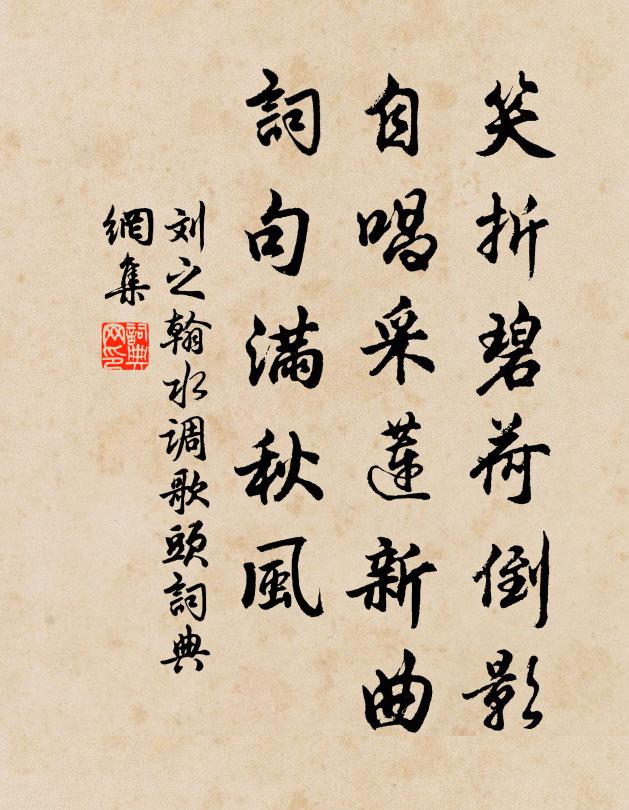 笑折碧荷倒影
自唱采蓮新曲
詞句滿秋風
刘之翰水调歌頭詞典
網集
詞典
网印